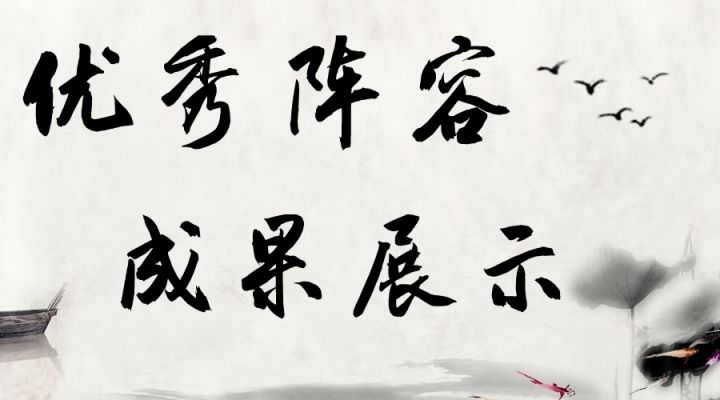 优秀阵容
成果展示